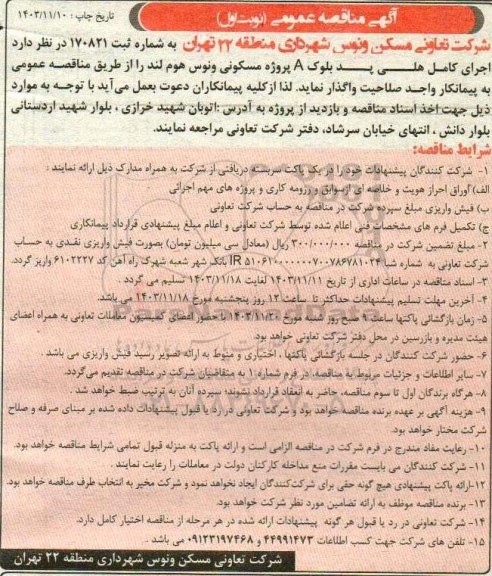 آگهی مناقصه عمومی (نوبت اول)
تاریخ چاپ : ۱۴۰۳/۱۱/۱۰
شرکت تعاونی مسکن ونوس شهرداری منطقه ۲۲ تهران به شماره ثبت ۱۷۰۸۲۱ در نظر دارد
اجرای کامل هلی پد بلوک A پروژه مسکونی ونوس هوم لند را از طریق مناقصه عمومی
به پیمانکار واجد صلاحیت واگذار نماید. لذا ازکلیه پیمانکاران دعوت بعمل می‌آید با توجه به موارد
ذیل جهت اخذ اسناد مناقصه و بازدید از پروژه به آدرس :اتوبان شهید خرازی ، بلوار شهید اردستانی
بلوار دانش ، انتهای خیابان سرشاد، دفتر شرکت تعاونی مراجعه نمایند.
شرایط مناقصه:
۱- شرکت کنندگان پیشنهادات خود را در یک پاکت سربسته دریافتی از شرکت به همراه مدارک ذیل ارائه نمایند :
الف) اوراق احراز هویت و خلاصه ای از سوابق و رزومه کاری و پروژه های مهم اجرائی
ب) فیش واریزی مبلغ سپرده شرکت در مناقصه به حساب شرکت تعاونی
ج) تکمیل فرم های مشخصات فنی اعلام شده توسط شرکت تعاونی و اعلام مبلغ پیشنهادی قرارداد پیمانکاری
۲- مبلغ تضمین شرکت در مناقصه ۳۰۰/۰۰۰/۰۰۰ ریال (معادل سی میلیون تومان) بصورت فیش واریزی نقدی به حساب
شرکت تعاونی به شماره شبا IR بانک شهر شعبه شهرک راه آهن کد ۶۱۰۲۲۲۷ واریز گردد.
۳- اسناد مناقصه در ساعات اداری از تاریخ ۱۴۰۳/۱۱/۱۱ لغایت ۱۴۰۳/۱۱/۱۸ تسلیم می گردد .
۴- آخرین مهلت تسلیم پیشنهادات حداکثر تا ساعت ۱۲ روز پنجشنبه مورخ ۱۴۰۳/۱۱/۱۸ می باشد.
۵- زمان بازگشائی پاکتها ساعت ۹ صبح روز شنبه مورخ ۱۴۰۳/۱۱/۲۰ با حضور اعضای کمیسیون معاملات تعاونی به همراه اعضای
هیئت مدیره و بازرسین در محل دفتر شرکت تعاونی خواهد بود.
۶- حضور شرکت کنندگان در جلسه بازگشائی پاکتها ، اختیاری و منوط به ارائه تصویر رسید فیش واریزی می باشد .
۷- سایر اطلاعات و جزئیات مربوط به مناقصه، در فرم شماره ۱ به متقاضیان شرکت در مناقصه تقدیم می‌گردد.
۸- هرگاه برندگان اول تا سوم مناقصه، حاضر به انعقاد قرارداد نشوند؛ سپرده آنان به ترتیب ضبط خواهد شد .
۹- هزینه آگهی بر عهده برنده مناقصه خواهد بود و شرکت تعاونی در رد یا قبول پیشنهادات داده شده بر مبنای صرفه و صلاح
شرکت مختار خواهد بود.
۱۰- رعایت مفاد مندرج در فرم شرکت در مناقصه الزامی است و ارائه پاکت به منزله قبول تمامی شرایط مناقصه خواهد بود.
۱۱- شرکت کنندگان می بایست مقررات منع مداخله کارکنان دولت در معاملات را رعایت نمایند .
۱۲-ارائه پاکت پیشنهادی هیچ گونه حقی برای شرکت‌کنندگان ایجاد نخواهد نمود و شرکت مخیر به انتخاب طرف مناقصه خواهد بود.
۱۳- برنده مناقصه موظف به ارائه تضامین مورد نظر شرکت خواهد بود.
۱۴- شرکت تعاونی در رد یا قبول هر گونه پیشنهادات ارائه شده در هر مرحله از مناقصه اختیار کامل دارد.
۱۵- تلفن های شرکت جهت کسب اطلاعات ۴۴۹۹۱۴۷۳ و ۰۹۱۲۳۱۹۷۴۶۸ می باشد .
شرکت تعاونی مسکن ونوس شهرداری منطقه ۲۲ تهران